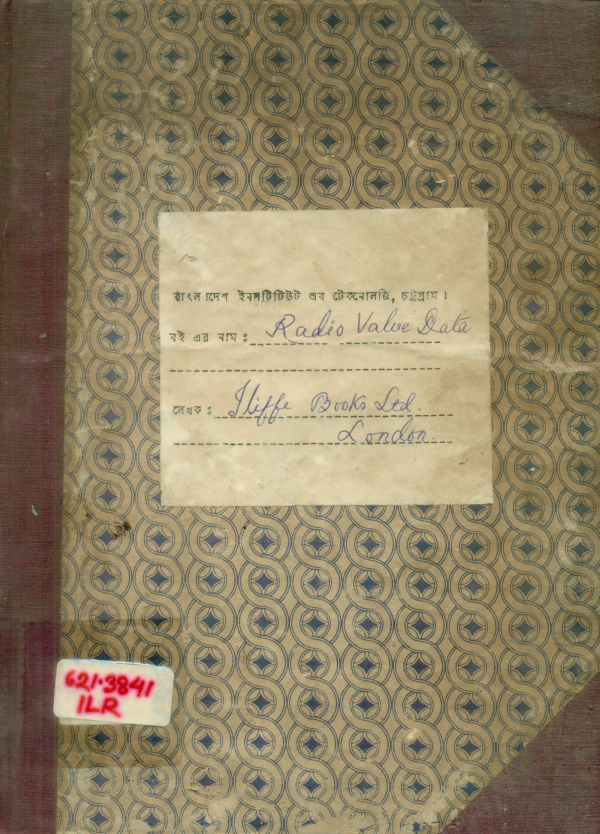 বাংলাদেশ ইনসটিটিউট অব টেকনোলজি, চট্টগ্রাম।
বই এর নাম : Radio Valve Data
লেখক : Iliffe Books Ltd.
London
621.3841
ILR